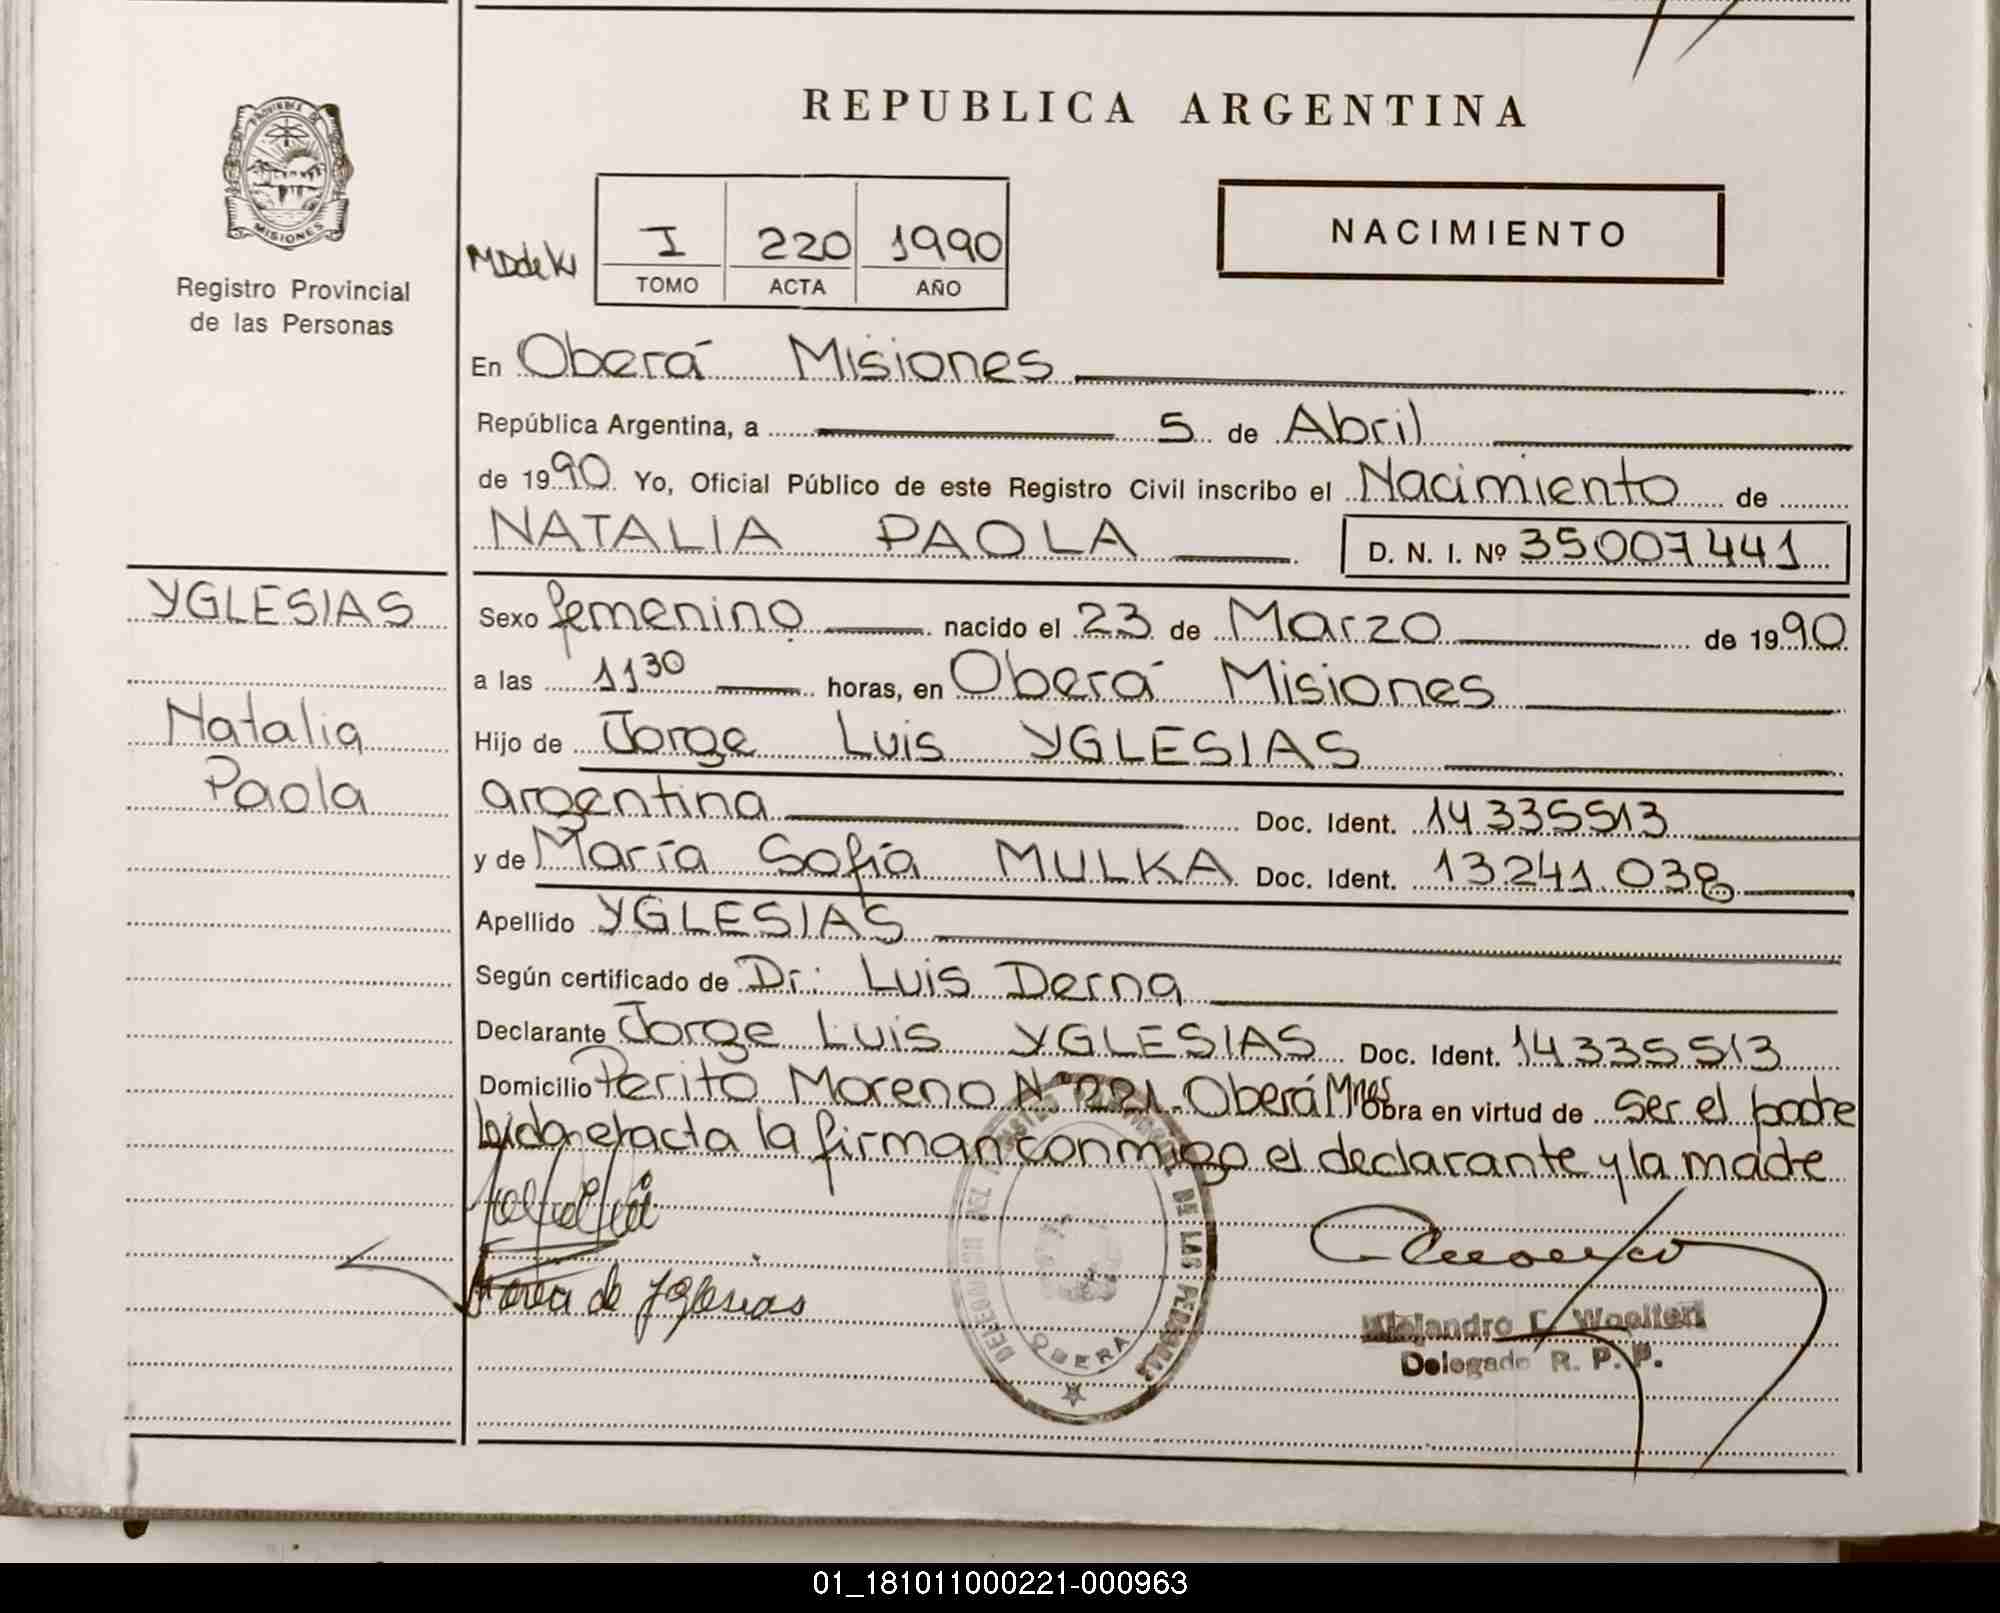 REPUBLICA ARGENTINA
PROVINCIA DE
MISIONES
Registro Provincial
de las Personas
I 220 1990
TOMO ACTA AÑO
NACIMIENTO
En Oberá Misiones
República Argentina, a 5 de Abril
de 1990 Yo, Oficial Público de este Registro Civil inscribo el Nacimiento de
NATALIA PAOLA D. N. I. Nº 35007441
YGLESIAS
Natalia
Paola
Sexo femenino nacido el 23 de Marzo de 1990
a las 11 30 horas, en Oberá Misiones
Hijo de Jorge Luis YGLESIAS
argentina Doc. Ident. 14335513
y de María Sofía MULKA Doc. Ident. 13241.038
Apellido YGLESIAS
Según certificado de Dr: Luis Derna
Declarante Jorge Luis YGLESIAS Doc. Ident. 14335513
Domicilio Perito Moreno Nº 221. Oberá Mnes Obra en virtud de ser el padre
Leida el acta la firman conmigo el declarante y la madre
de Yglesias
DE LAS PERSONAS
OBERA
Alejandro Woelfert
Delegado R. P. P.
01_181011000221-000963